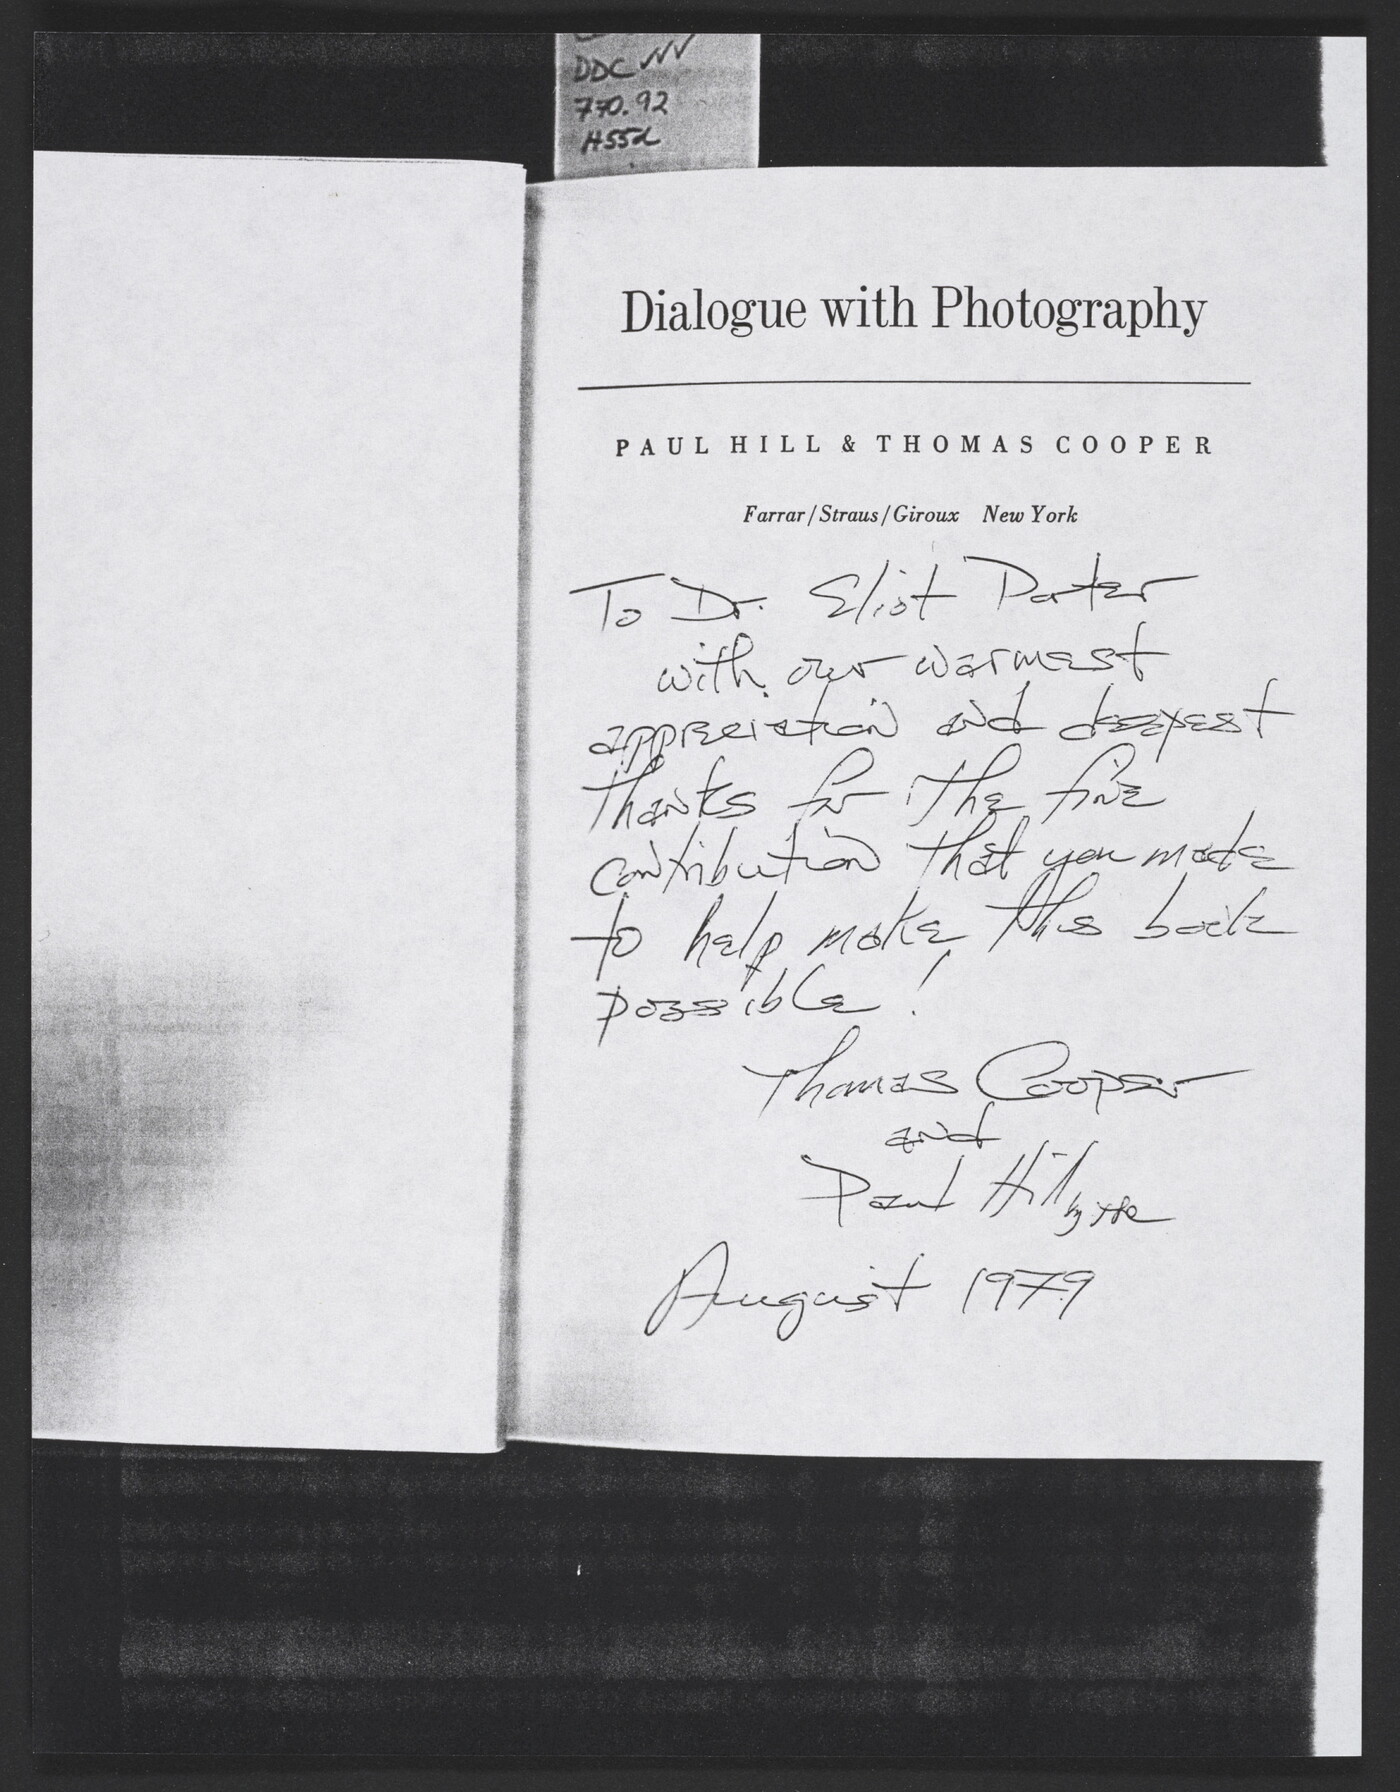 DDC
770.92
H55d
Dialogue with Photography
PAUL HILL & THOMAS COOPER
Farrar/Straus/Giroux New York
To Dr. Eliot Porter
with our warmest
appreciation and deepest
thanks for the fine
contribution that you made
to help make this book
possible!
Thomas Cooper
and
Paul Hill by
August 1979